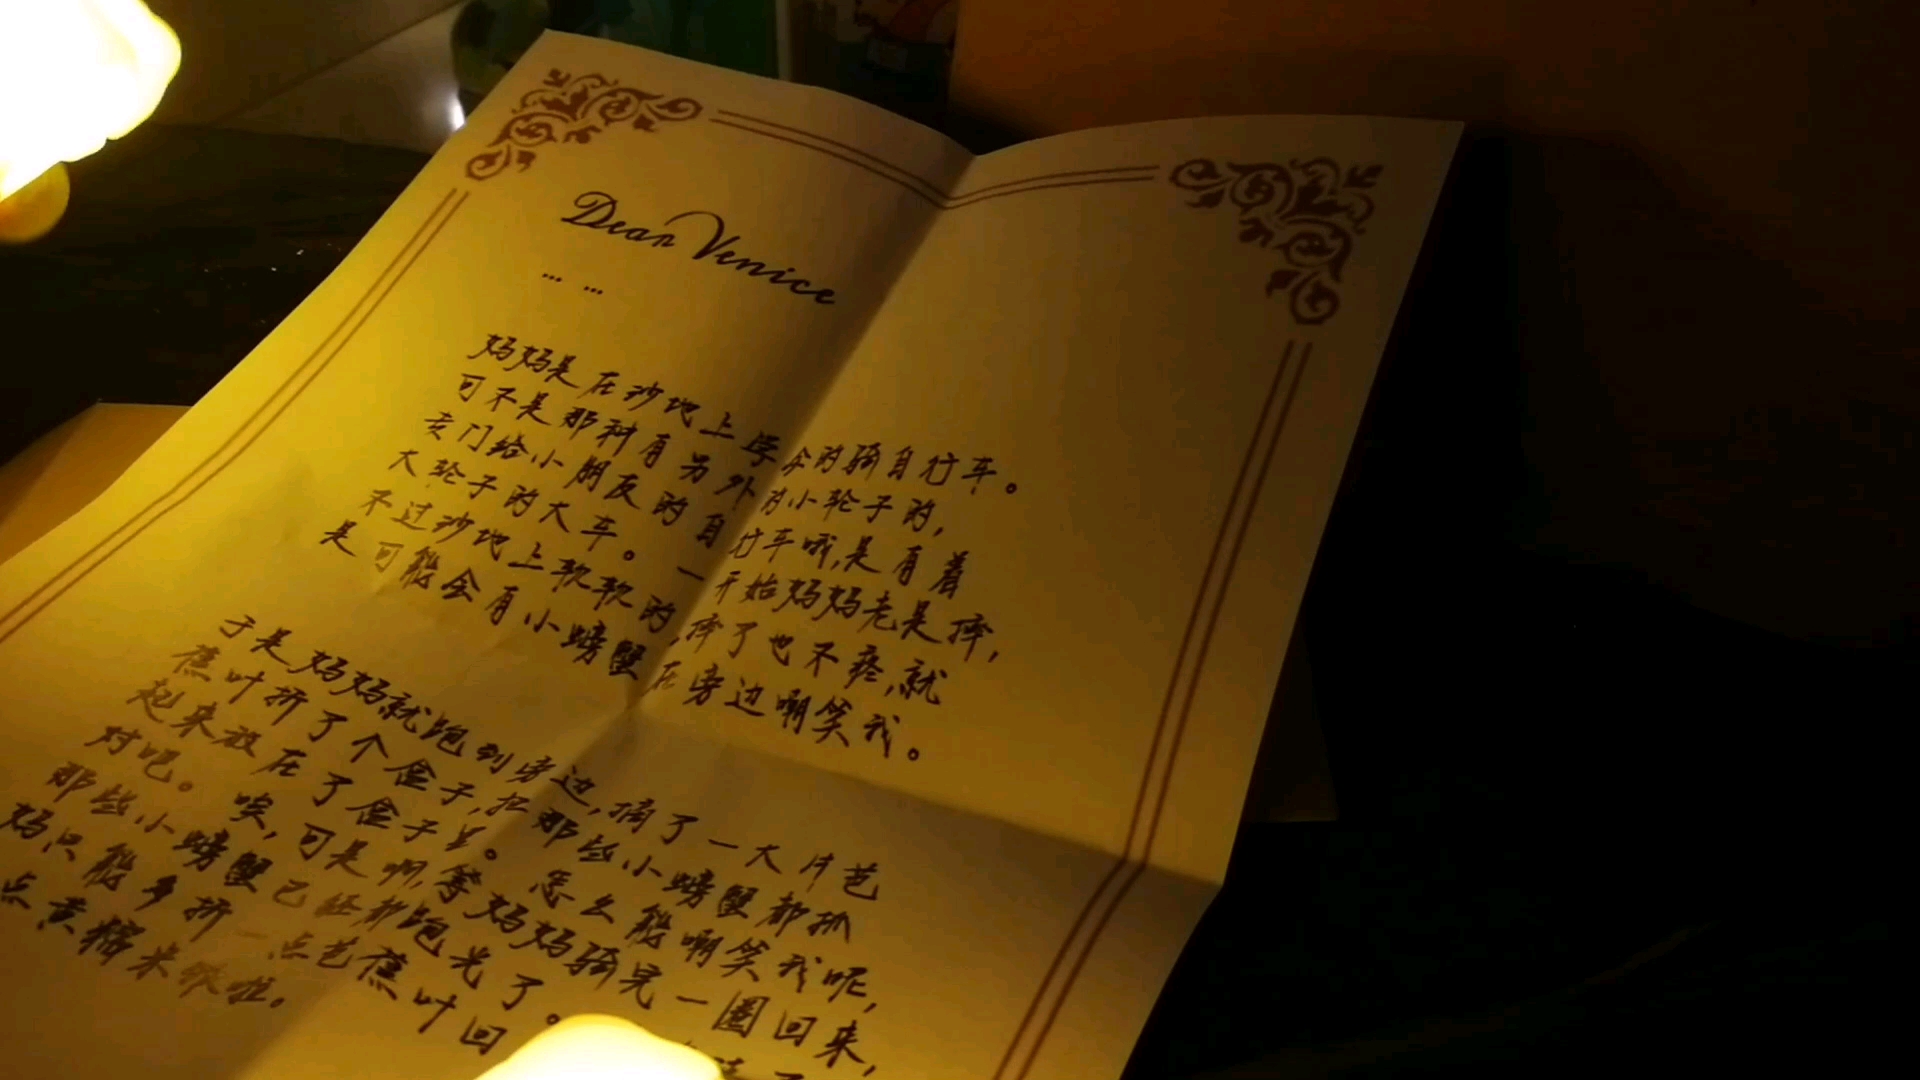 Dear Venice
… …
妈妈是在沙地上学会的骑自行车。
可不是那种有另外的小轮子的,
专门给小朋友的自行车哦,是有着
大轮子的大车。一开始妈妈老是摔,
不过沙地上软软的,摔了也不疼,就
是可能会有小螃蟹在旁边嘲笑我。
于是妈妈就跑到旁边,摘了一大片芭
蕉叶折了个盒子,把那些小螃蟹都抓
起来放在了盒子里。怎么能嘲笑我呢,
对吧。唉,可是啊,等妈妈骑完一圈回来,
那些小螃蟹已经都跑光了。
妈只能多折一点芭蕉叶回
点黄糯米饭啦。